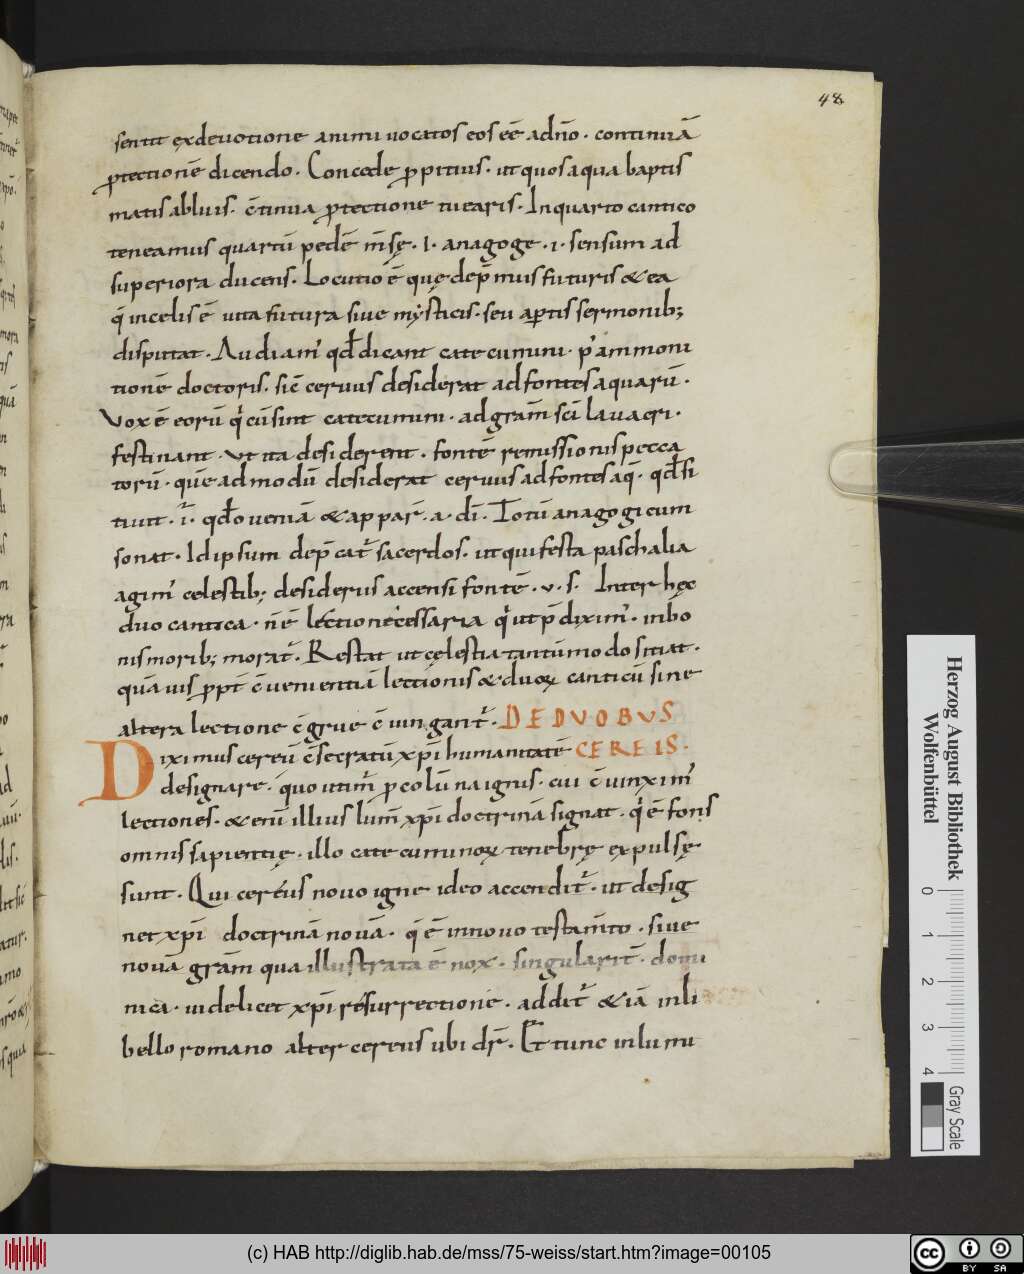 48
sentit ex deuotione animi uocatos eos eē ad dño· continuā
ꝓtectionē dicendo· Concede ꝓpitius· ut quos aqua baptis
matis abluis· c̄tinua ꝓtectione tuearis· In quarto cantico
teneamus quartū pedē m̄sę· i· anagoge· i· sensum ad
superiora ducens· Locutio ē que dep̄mus futuris & ea
q̄ in celis ē uita futura siue mysticis· seu aꝑtis sermonib;
disputat· Audiam' qđ dicant catecumini· p' ammoni
tionē doctoris· sic̄ ceruus desiderat ad fontes aquarū·
Vox ē eorū q' cū sint catecumini· ad gram̄ sc̄i lauacri·
festinant· Vt ita desiderent· fontē remissionis pecca
torū· quē ad modū desiderat ceruus ad fontes aq̄· qđ si
tiuit· i· qđo ueniā & appar̄· a· di· Totū anagogicum
sonat· Id ipsum dep̄cat̄ sacerdos· ut qui festa paschalia
agim' celestib; desideriis accensi fontē· v· s· Inter hęc
duo cantica· n̄ ē lectio necessaria q' ut p̄dixim'· in bo
nis morib; morat̄· Restat ut cęlestia tantūmodo sitiat·
quāuis ꝓpt̄ c̄uenientiā lectionis & duoꝝ canticū sine
altera lectione c̄grue c̄iungant̄· DE DVOBVS
Diximus cereū c̄secratū xp̄i humanitatē CEREIS·
designare· quo utim̄ ꝓ colūna ignis· cui c̄iunxim'
lectiones· & enī illius lum̄ xp̄i doctrinā signat· q' ē fons
omnis sapientię· illo catecuminoꝝ tenebrę expulsę
sunt· Qui cereus nouo igne ideo accendit̄· ut desig
net xp̄i doctrinā nouā· q̄ ē in nouo testam̄to· siue
nouā gram̄ qua illustrata ē nox· singularit̄· domi
nica· uidelicet xp̄i resurrectione· addit̄ & iā in li
bello romano alter cereus ubi dr̄· Et tunc in lumi
Herzog August Bibliothek
Wolfenbüttel
0 1 2 3 4
Gray Scale
(c) HAB http://diglib.hab.de/mss/75-weiss/start.htm?image=00105
cc BY SA